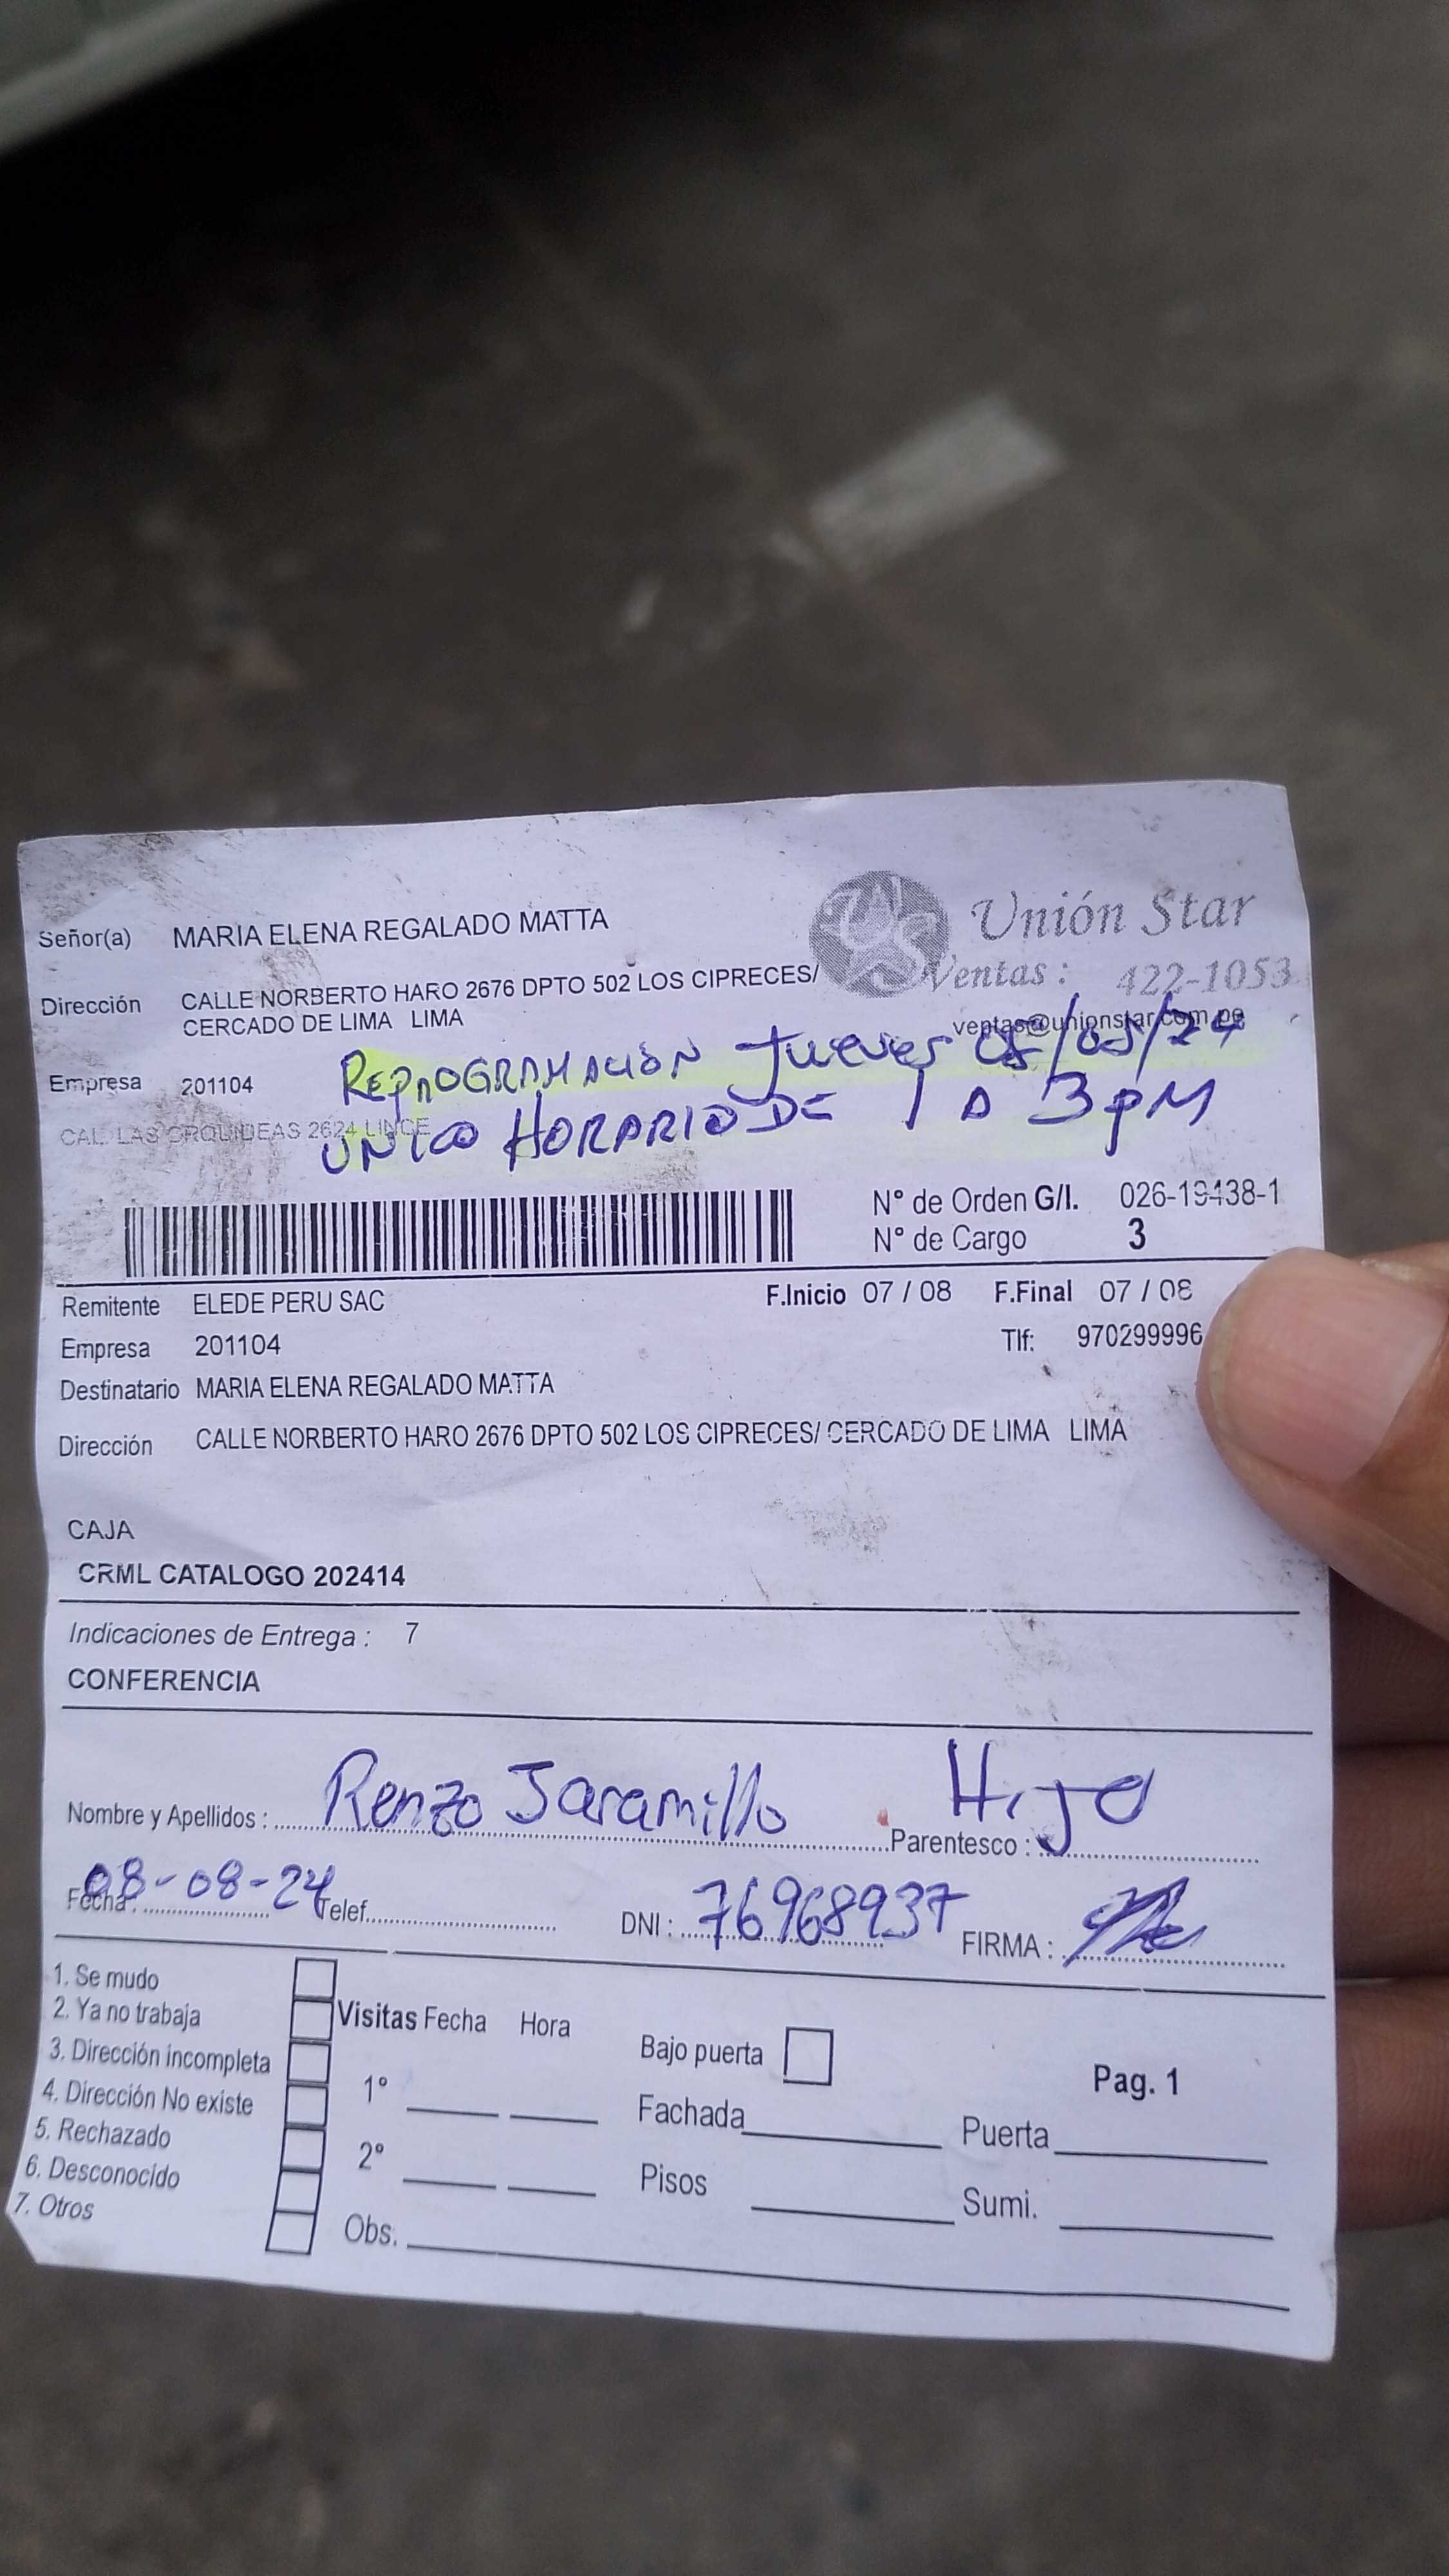 Señor(a) MARIA ELENA REGALADO MATTA
Unión Star
Dirección CALLE NORBERTO HARO 2676 DPTO 502 LOS CIPRECES/
CERCADO DE LIMA LIMA
Ventas : 422-1053
ventas@unionstar.com.pe
REPROGRAMACIÓN Jueves 08/08/24
Empresa 201104
UNICO HORARIO DE 1 A 3 PM
CAL. LAS ORQUIDEAS 2624 LINCE
N° de Orden G/I. 026-19438-1
N° de Cargo 3
Remitente ELEDE PERU SAC F.Inicio 07 / 08 F.Final 07 / 08
Empresa 201104 Tlf: 970299996
Destinatario MARIA ELENA REGALADO MATTA
Dirección CALLE NORBERTO HARO 2676 DPTO 502 LOS CIPRECES/ CERCADO DE LIMA LIMA
CAJA
CRML CATALOGO 202414
Indicaciones de Entrega : 7
CONFERENCIA
Nombre y Apellidos : Renzo Jaramillo Parentesco : Hijo
Fecha : 08-08-24 Telef. DNI : 76968937 FIRMA :
1. Se mudo
2. Ya no trabaja
3. Dirección incompleta
4. Dirección No existe
5. Rechazado
6. Desconocido
7. Otros
Visitas Fecha Hora
1°
2°
Obs.
Bajo puerta
Fachada
Pisos
Pag. 1
Puerta
Sumi.